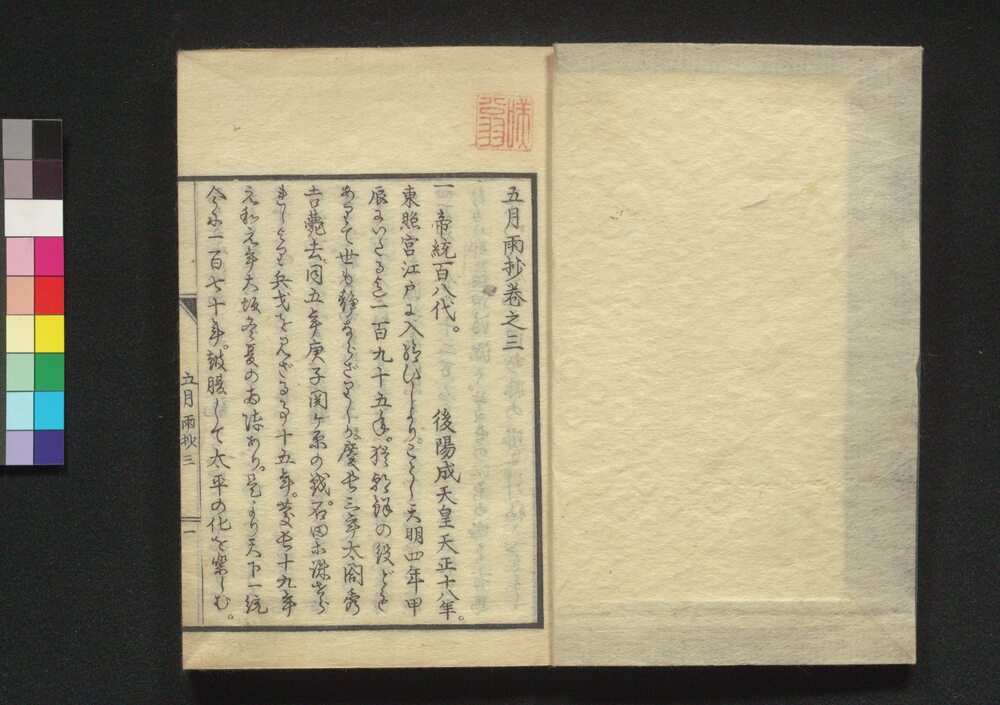 五月雨抄巻之三
一 帝統百八代。 後陽成天皇天正十八年。
東照宮江戸に入給ひしより。ことし天明四年甲
辰にいたる迄一百九十五年。猶朝鮮の役なども
ありて世も静ならざりしが慶長三年太閤秀
吉薨去。同五年庚子関ヶ原の戦。石田亦誅せら
れしより兵戈を見ざる事十五年。慶長十九年
元和元年大坂冬夏の御陣あり。是より天下一統
今に一百七十年。鼓腹して太平の化を楽しむ。
五月雨抄三
一